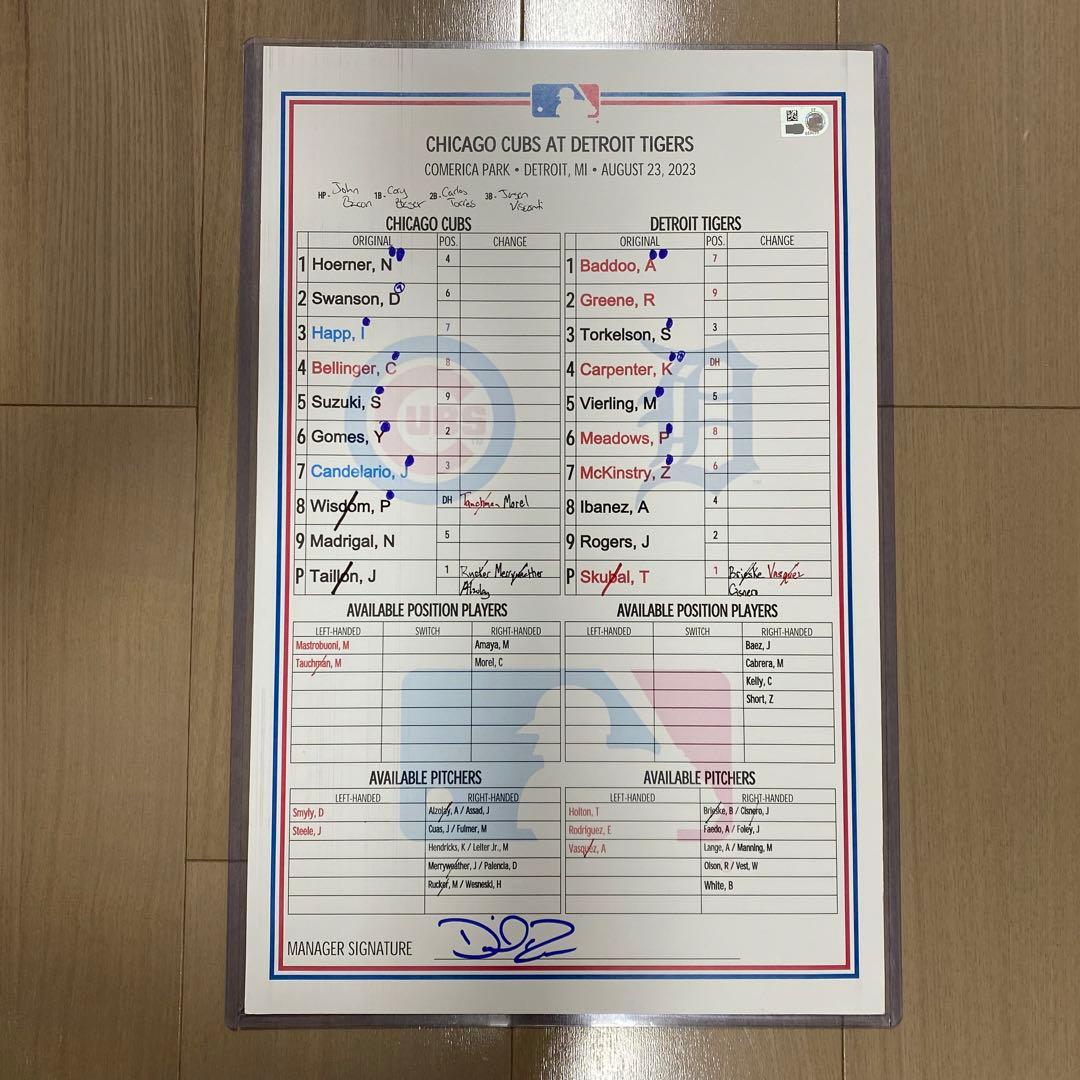 CHICAGO CUBS AT DETROIT TIGERS
COMERICA PARK • DETROIT, MI • AUGUST 23, 2023
HP- John Bacon 1B- Cory Blaser 2B- Carlos Torres 3B- Jansen Visconti
CHICAGO CUBS
ORIGINAL POS. CHANGE
1 Hoerner, N 4
2 Swanson, D 6
3 Happ, I 7
4 Bellinger, C 8
5 Suzuki, S 9
6 Gomes, Y 2
7 Candelario, J 3
8 Wisdom, P DH Tauchman Morel
9 Madrigal, N 5
P Taillon, J 1 Rucker Merryweather
Alzolay
DETROIT TIGERS
ORIGINAL POS. CHANGE
1 Baddoo, A 7
2 Greene, R 9
3 Torkelson, S 3
4 Carpenter, K DH
5 Vierling, M 5
6 Meadows, P 8
7 McKinstry, Z 6
8 Ibanez, A 4
9 Rogers, J 2
P Skubal, T 1 Brieske Vasquez
Cisnero
CUBS
AVAILABLE POSITION PLAYERS
LEFT-HANDED SWITCH RIGHT-HANDED
Mastrobuoni, M Amaya, M
Tauchman, M Morel, C
AVAILABLE POSITION PLAYERS
LEFT-HANDED SWITCH RIGHT-HANDED
Baez, J
Cabrera, M
Kelly, C
Short, Z
AVAILABLE PITCHERS
LEFT-HANDED RIGHT-HANDED
Smyly, D Alzolay, A / Assad, J
Steele, J Cuas, J / Fulmer, M
Hendricks, K / Leiter Jr., M
Merryweather, J / Palencia, D
Rucker, M / Wesneski, H
AVAILABLE PITCHERS
LEFT-HANDED RIGHT-HANDED
Holton, T Brieske, B / Cisnero, J
Rodriguez, E Faedo, A / Foley, J
Vasquez, A Lange, A / Manning, M
Olson, R / Vest, W
White, B
MANAGER SIGNATURE